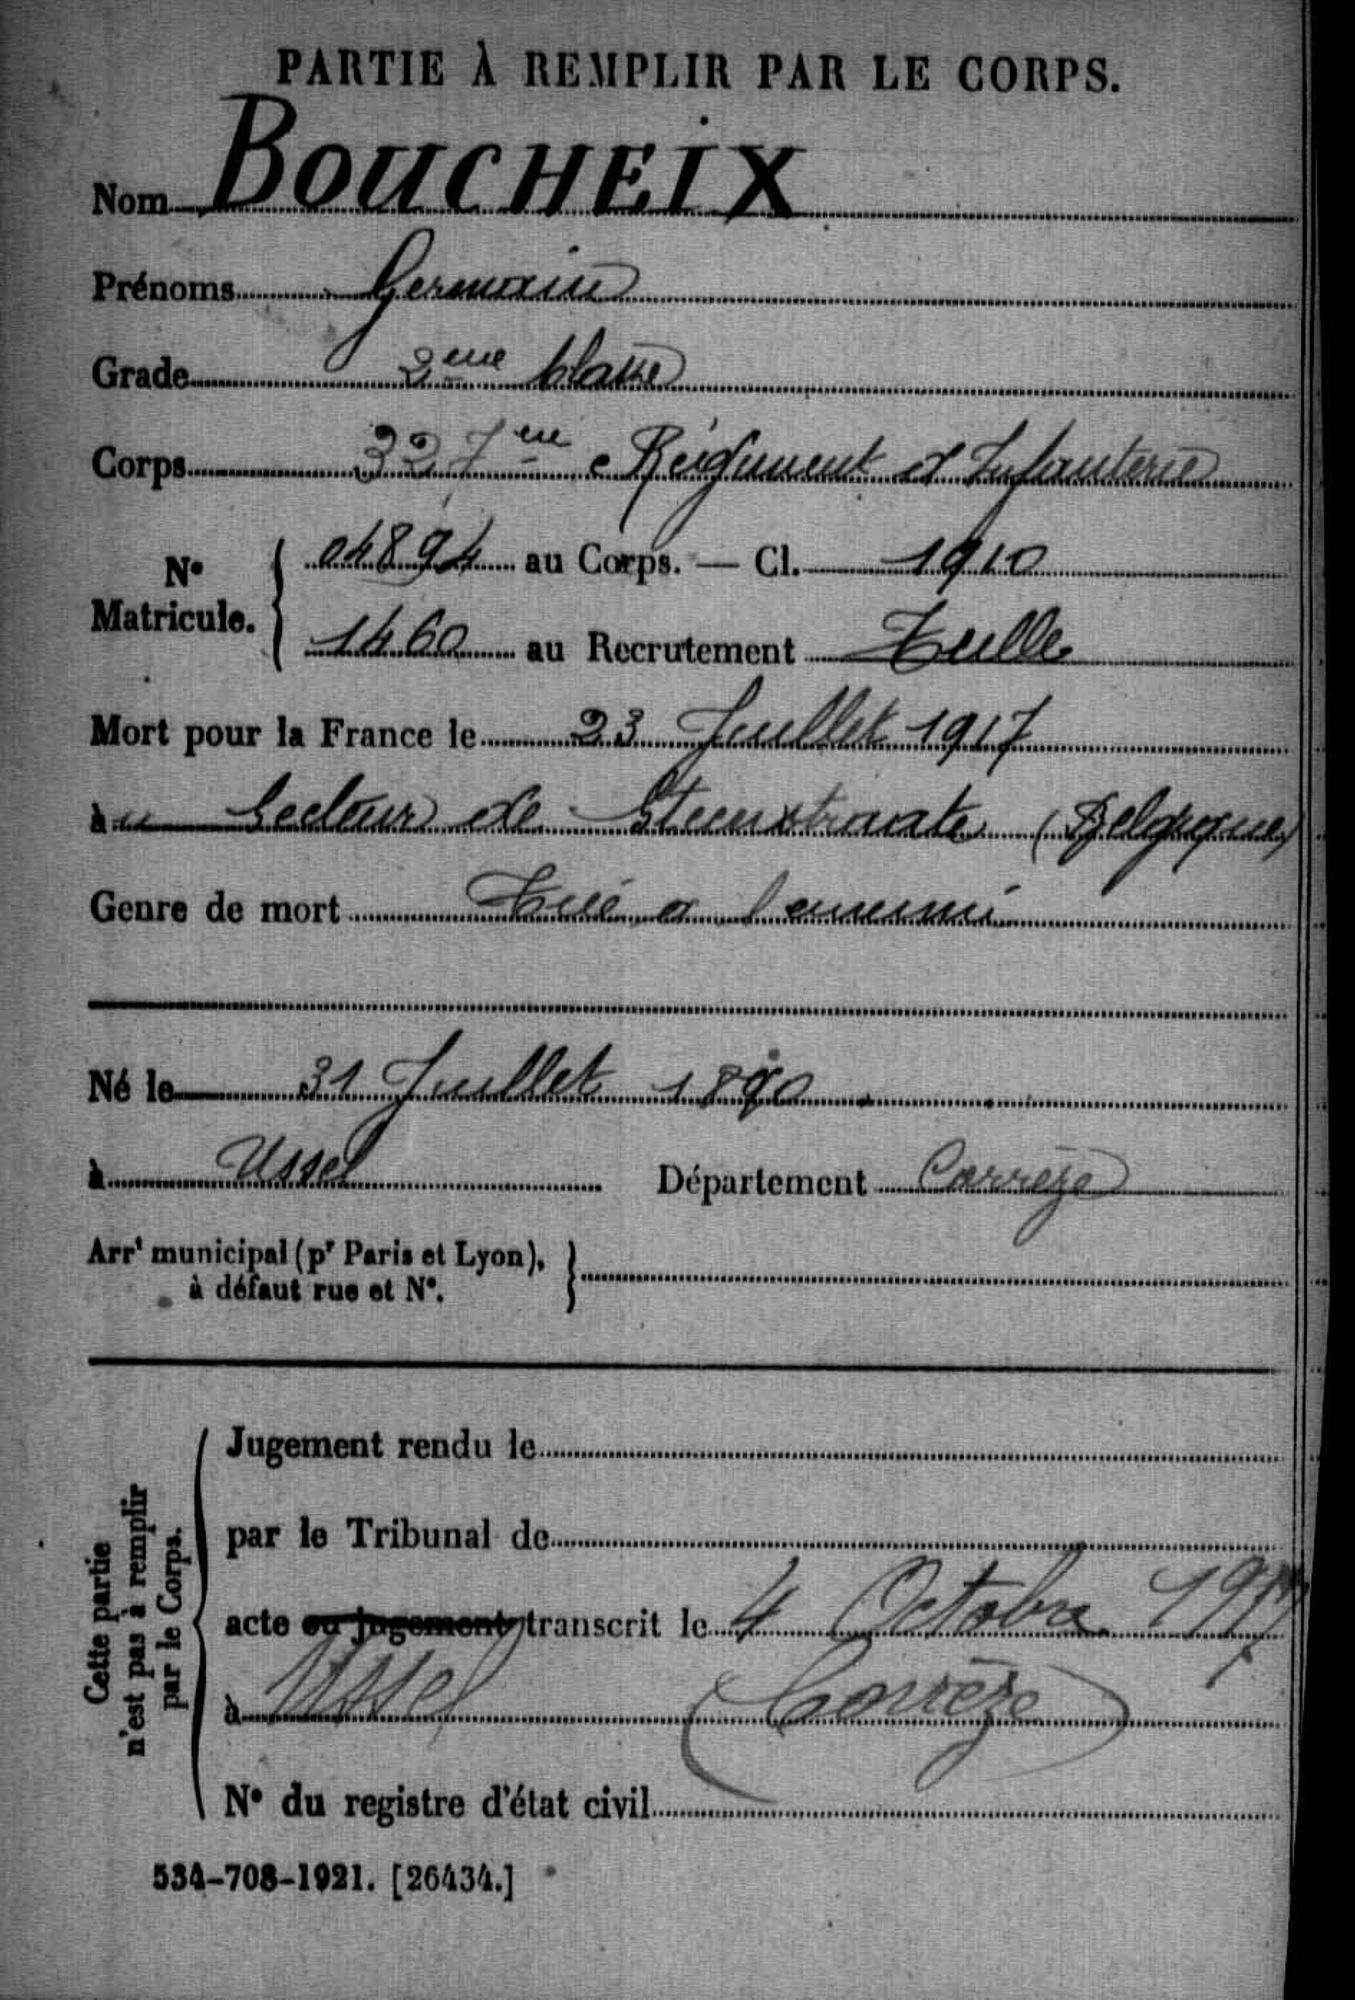 PARTIE À REMPLIR PAR LE CORPS.
Nom BOUCHEIX
Prénoms Germain
Grade 2ème Classe
Corps 327ème Régiment d'Infanterie
No Matricule. { 04894 au Corps. — Cl. 1910
1460 au Recrutement Tulle
Mort pour la France le 23 Juillet 1917
au Secteur de Steenstraate (Belgique)
Genre de mort Tué a l'ennemi
Né le 31 Juillet 1890
à Ussel Département Corrèze
Arrt municipal (pr Paris et Lyon), }
à défaut rue et No.
Cette partie
n'est pas à remplir
par le Corps.
Jugement rendu le
par le Tribunal de
acte ou jugement transcrit le 4 Octobre 1917
à Ussel (Corrèze)
No du registre d'état civil
534-708-1921. [26434.]